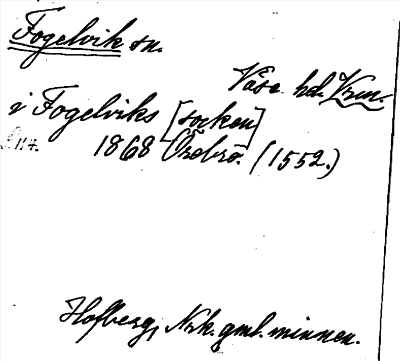 Fogelvik sn.
Våse hd. Vrm.
i Fogelviks [socken]
s. 117. 1868 Örebro. (1552.)
Hofberg, Nrk. gml. minnen.